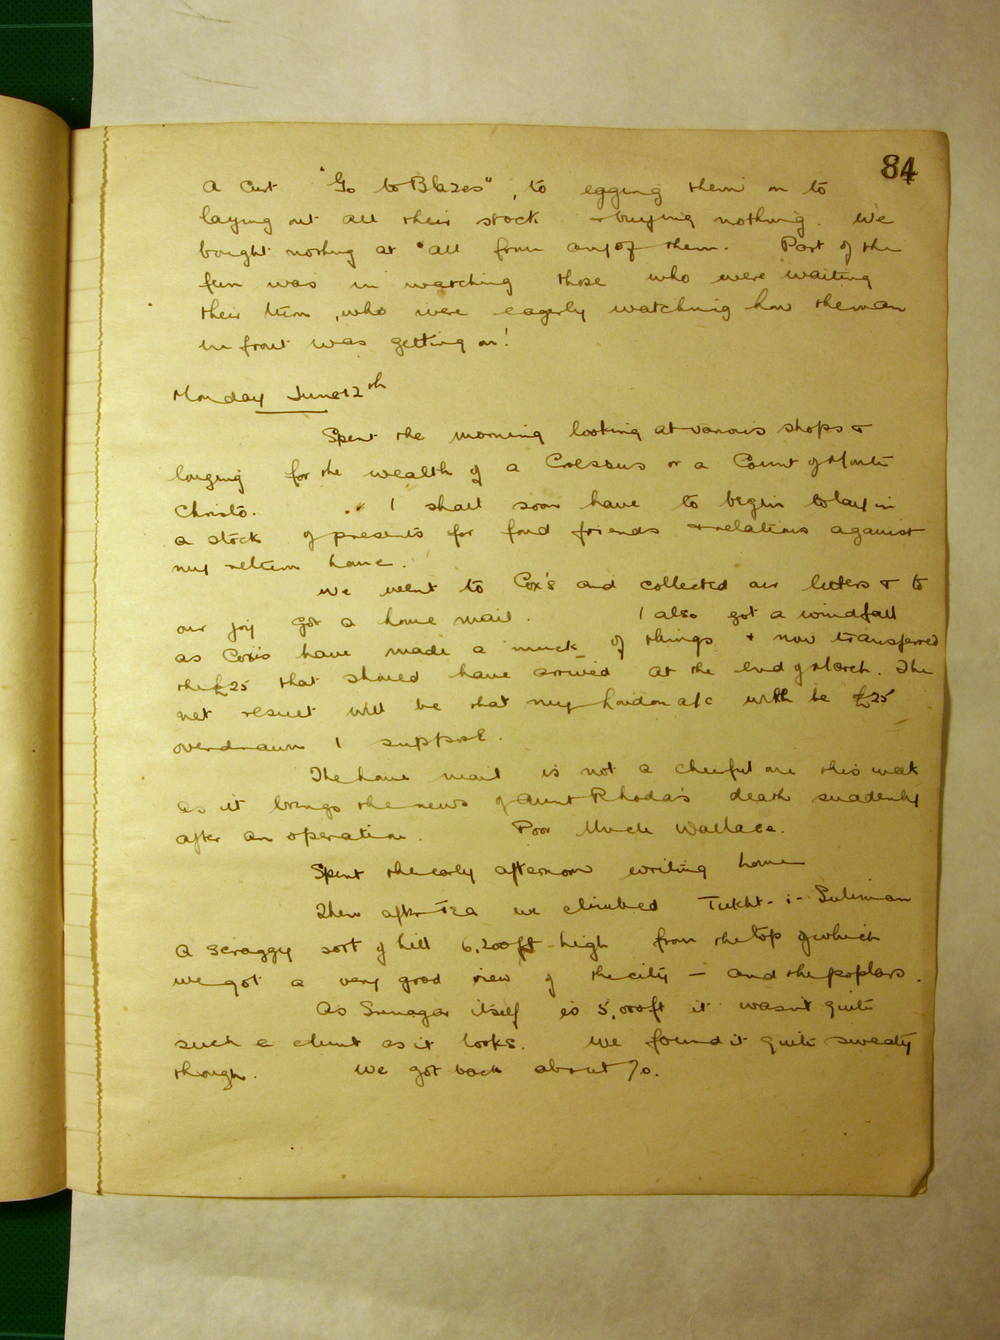 84
a curt "Go to Blazes", to egging them on to
laying out all their stock & buying nothing. We
bought nothing at all from any of them. Part of the
fun was in watching those who were waiting
their turn, who were eagerly watching how the man
in front was getting on!
Monday June 12th
Spent the morning looking at various shops &
longing for the wealth of a Croessus or a Count of Monte
Christo. I shall soon have to begin to lay in
a stock of presents for fond friends & relations against
my return home.
We went to Cox's and collected our letters & to
our joy got a home mail. I also got a windfall
as Cox's have made a muck of things & now transferred
the £25 that should have arrived at the end of March. The
net result will be that my London a/c will be £25
overdrawn I suppose.
The home mail is not a cheerful one this week
as it brings the news of Aunt Rhoda's death suddenly
after an operation. Poor Uncle Wallace.
Spent the early afternoon writing home
Then after tea we climbed Tukht-i-Suliman
a scraggy sort of hill 6,200ft high from the top of which
we got a very good view of the city — and the poplars.
As Srinagar itself is 5,000ft it wasn't quite
such a climb as it looks. We found it quite sweaty
though. We got back about 7.0.